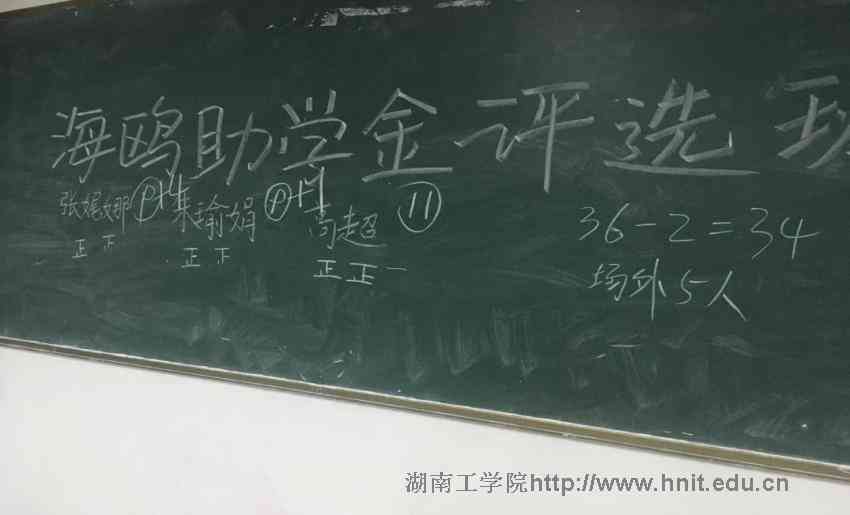 海鸥助学金评选现
张娓娜 朱瑜娟 高超 ⑪
正 正 正 正 正 正 一
36-2=34
场外5人
湖南工学院http://www.hnit.edu.cn